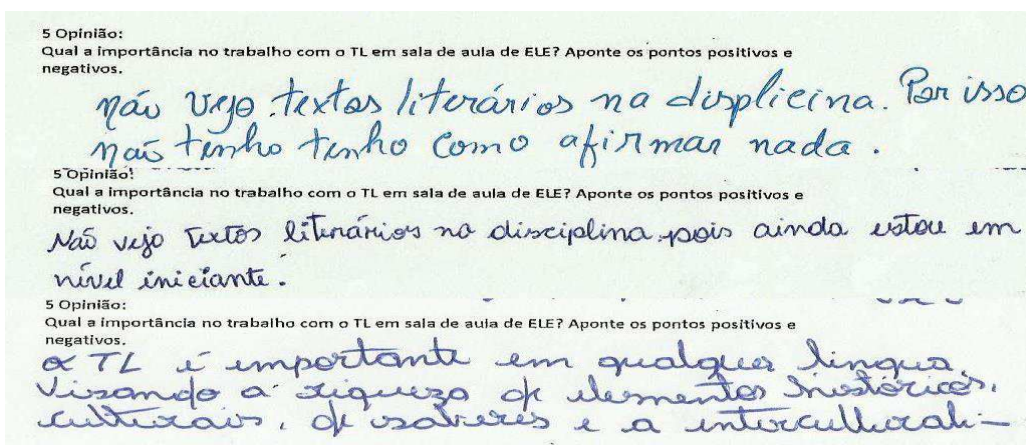 5 Opinião:
Qual a importância no trabalho com o TL em sala de aula de ELE? Aponte os pontos positivos e
negativos.
não vejo textos literários na displicina. Por isso
não tenho tenho como afirmar nada.
5 Opinião:
Qual a importância no trabalho com o TL em sala de aula de ELE? Aponte os pontos positivos e
negativos.
Não vejo textos literários na disciplina, pois ainda estou em
nível iniciante.
5 Opinião:
Qual a importância no trabalho com o TL em sala de aula de ELE? Aponte os pontos positivos e
negativos.
O TL é importante em qualquer língua,
Visando a riqueza de elementos históricos,
culturais, de saberes e a interculturali-